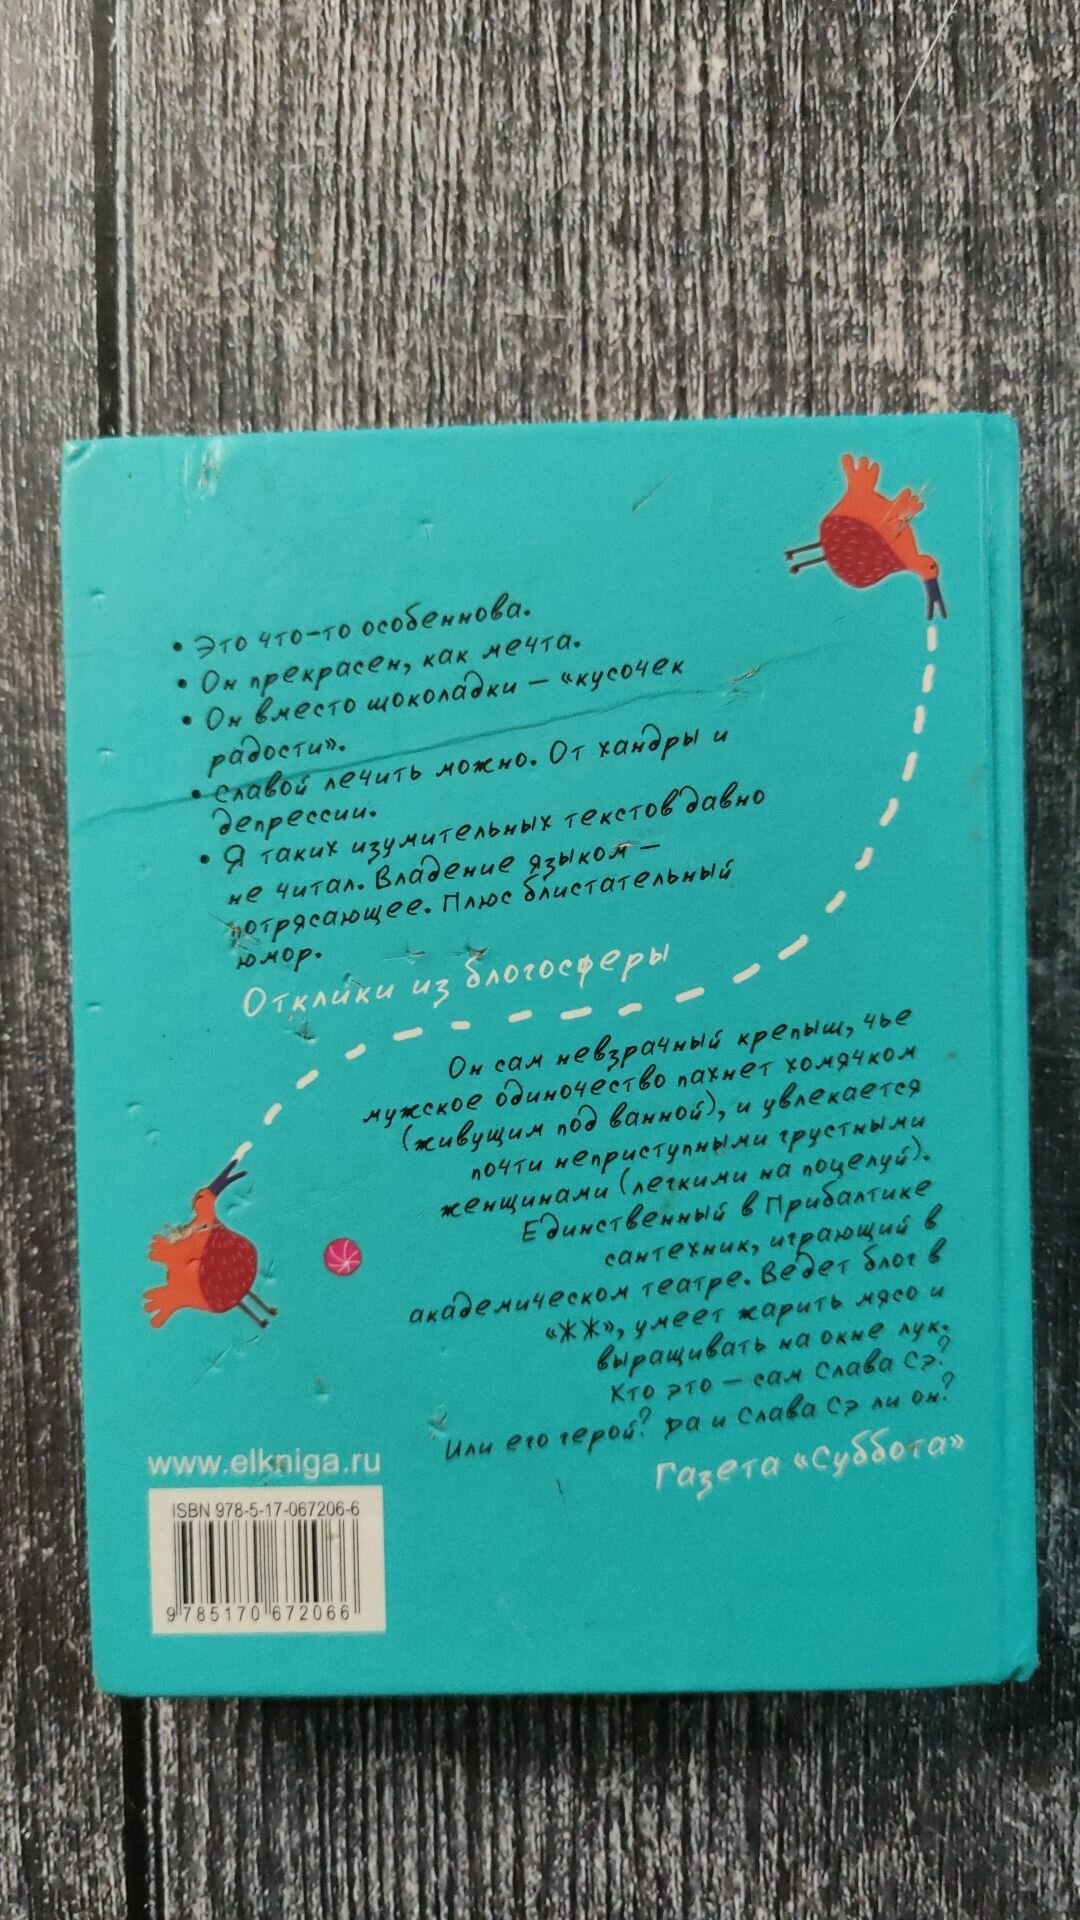 • Это что-то особеннова.
• Он прекрасен, как мечта.
• Он вместо шоколадки – «кусочек
радости».
• Славой лечить можно. От хандры и
депрессии.
• Я таких изумительных текстов давно
не читал. Владение языком –
потрясающее. Плюс блистательный
юмор.
Отклики из блогосферы
Он сам невзрачный крепыш, чье
мужское одиночество пахнет хомячком
(живущим под ванной), и увлекается
почти неприступными грустными
женщинами (легкими на поцелуй).
Единственный в Прибалтике
сантехник, играющий в
академическом театре. Ведет блог в
«ЖЖ», умеет жарить мясо и
выращивать на окне лук.
Кто это – сам Слава Сэ?
Или его герой? Да и Слава Сэ ли он?
Газета «Суббота»
www.elkniga.ru
ISBN 978-5-17-067206-6
9 785170 672066